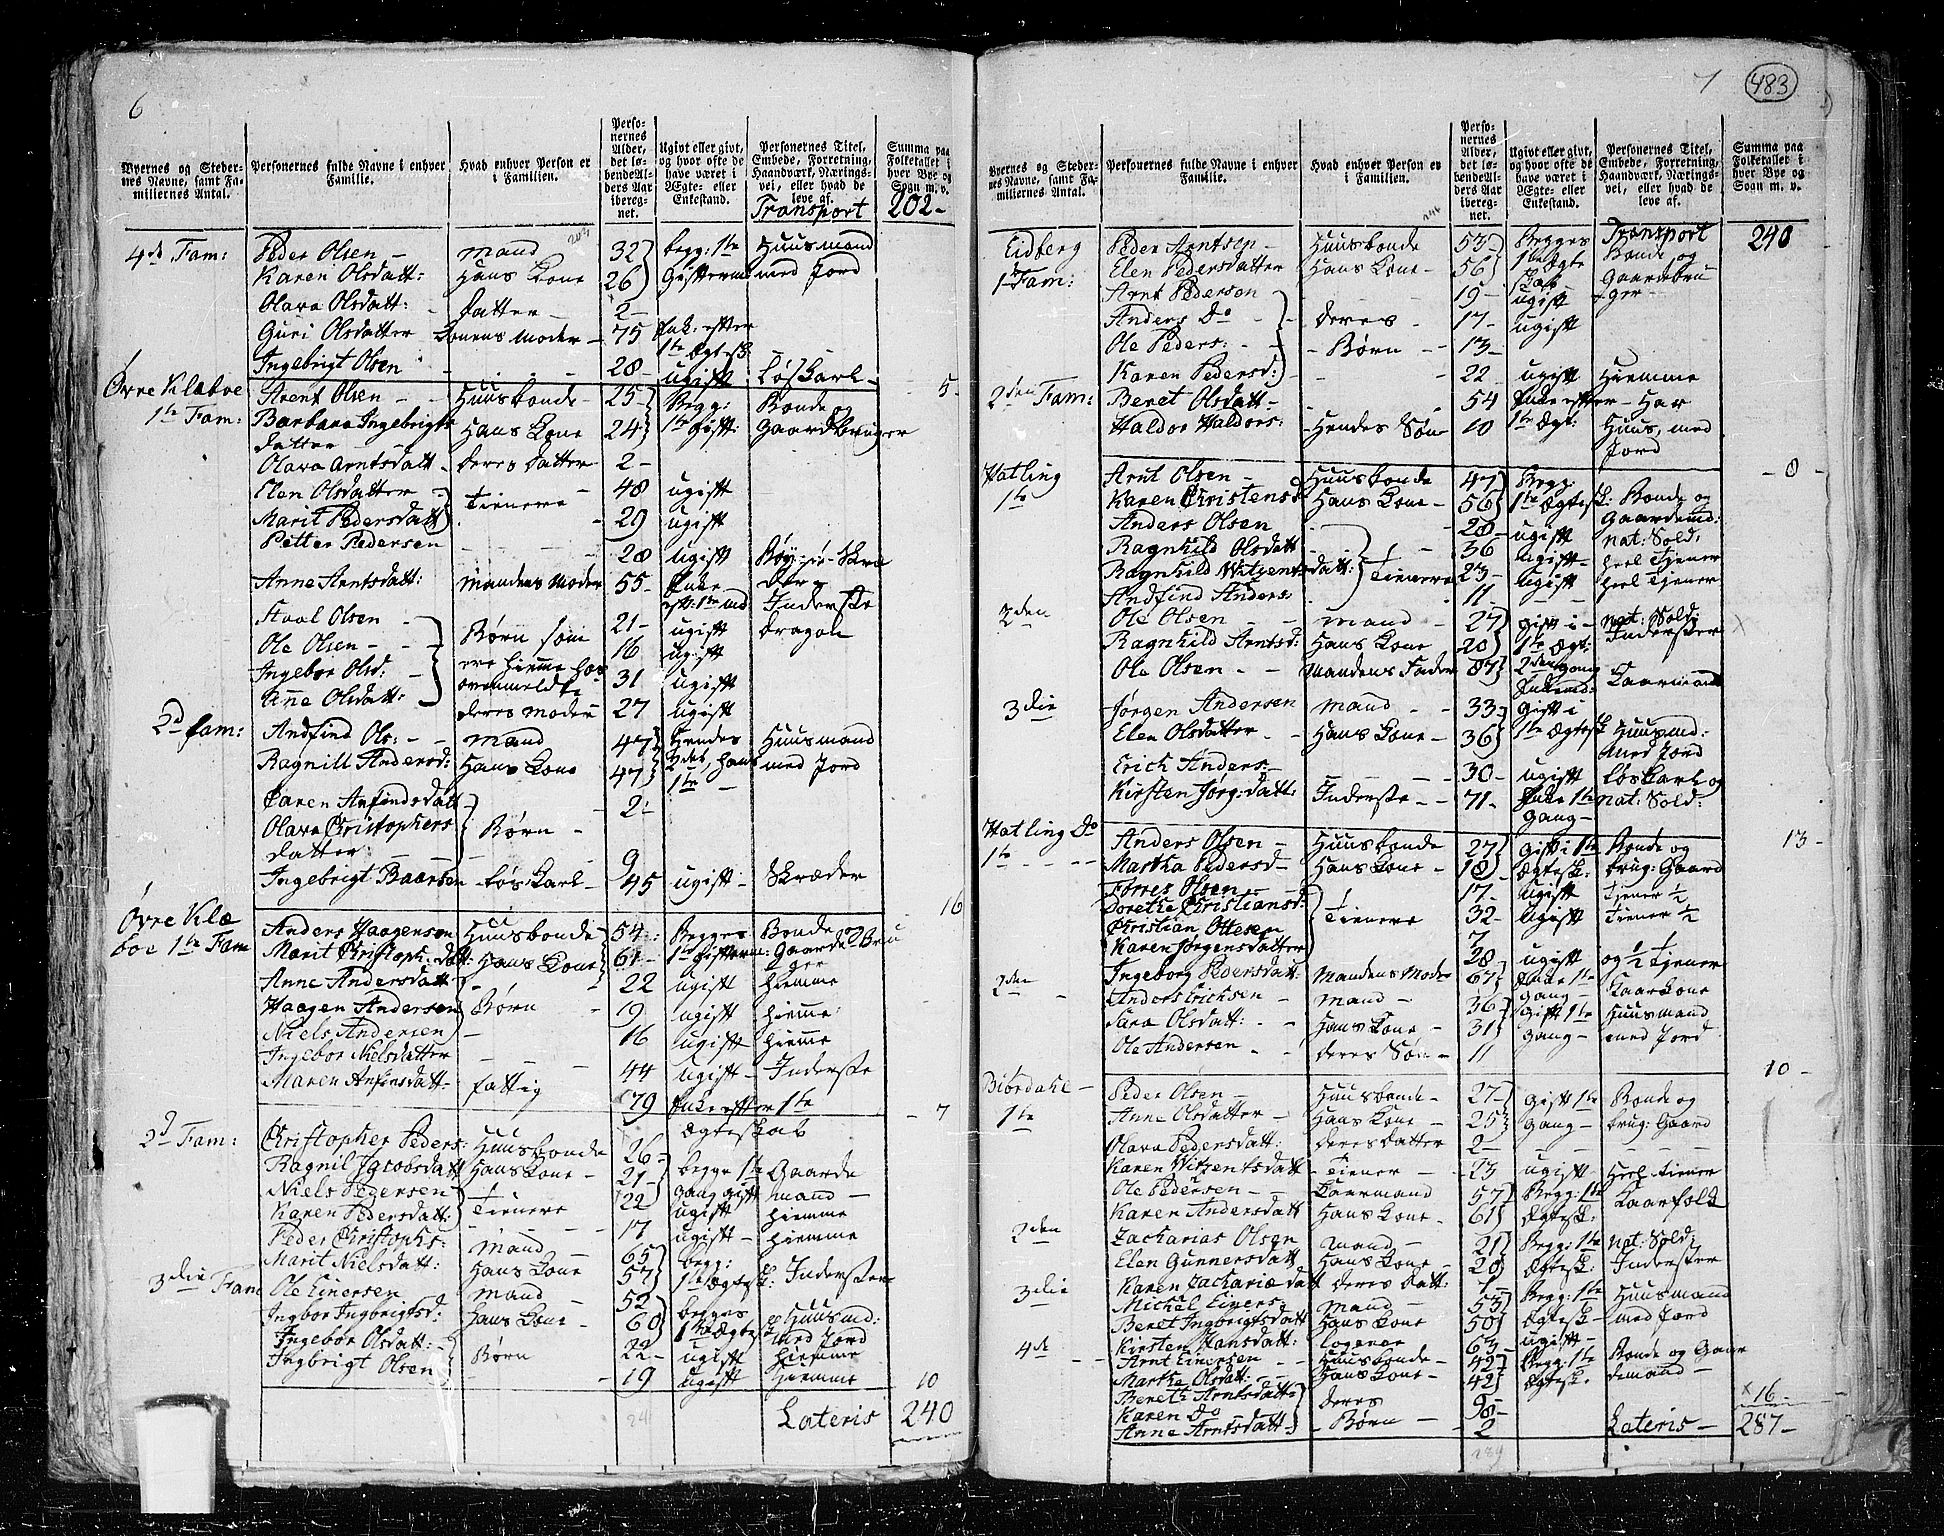 6
Byernes og Steder-
nes Navne, samt Fa-
miliernes Antal.
Personernes fulde Navne i enhver
Familie.
Hvad enhver Person er
i Familien.
Perso-
nernes
Alder,
det lø-
bendeAl-
ders Aar
ibereg-
net.
Ugivt eller givt,
og hvor ofte de
have været i
Ægte- eller
Enkestand.
Personernes Titel,
Embede, Forretning,
Haandværk, Nærings-
vei, eller hvad de
leve af.
Summa paa
Folketallet i
hver Bye og
Sogn m. v.
Transport 202-
4de Fam: Peder Olsen - Mand 32 begg: 1te Huusmand
Karen Olsdatt: Hans Kone 26 Gifterm med Jord
Olava Olsdatt: - datter - 2 -
Guri Olsdatter Konens Moder - 75 Enke: efter
1te Ægtesk
Ingebrigt Olsen 28 - ugift Løs Karl - 5 -
Øvre Klæboe Arent Olsen - - Huusbonde - 25 Begg: Bonde og
1te Fam: Barbara Ingebrigts Hans Kone 24 1te Gift: Gaardbruger
datter -
Olava Arntsdatt - deres datter 2 -
Elen Olsdatter - Tienere 48 ugift
Marit Pedersdatt 29 ugift
Petter Pedersen 28 ugift
Anne Arntsdatt: Mandens Moder 55 - Enke
eft: 1te Md Inderste
Olsen - 21 - ugift Dragon
Ole Olsen - - - Børn som 16 ugift
Ingebor Olsd: ere hiemme hos 31 ugift
Anne Olsdatt: deres Moder 27 ugift
2d Fam: Andfind Ols: - - Mand 47 Hendes Huusmand
Ragnill Andersd: Hans Kone 47 2det, Hans med Jord
1te
Karen Anfindsdatt - 2 -
Olava Christophers Børn -
datter - 9
Ingebrigt Baarsen Løs Karl - 45 ugift - Skræder
16
Øvre Klæ Anders Haagensen Huusbonde 54 - Begges Bonde og
boe 1te Fam Marit Christoph: datt: Hans Kone 61 - 1te Gifterm: Gaardebru
ger
Anne Andersdatt - 22 ugift hiemme
Haagen Andersen Børn - 19 ugift hiemme:
Niels Andersen - 16 ugift hiemme
Ingebor Nielsdatter - - 44 ugift - Inderste
Maren Anfinsdatt - fattig 79 Enke efter 1te - 7
Ægteskab
2d Fam: Christopher Peders: Huusbonde 26 -
Ragnil Jacobsdatt Hans Kone 21 - begge 1te Gaarde
Niels Pedersen Tienere 22 gang gift mand -
Karen Pedersdatt: 17 ugift hiemme
Peder Christophs: Mand 65 ugift - hiemme
Marit Nielsdatt: Hans Kone 57 begg:
3die Fam Ole Einersen Mand - 52 1te Ægtesk: Inderster
Ingbor Ingbrigtsd: Hans Kone - 60 begges Huusmd:
Ingebor Olsdatt: - Børn 22 - 1te Ægtesk: med Jord
Ingbrigt Olsen - - 19 ugift hiemme
ugift hiemme 10
Lateris 240
7 483
Byernes og Steder-
nes Navne, samt Fa-
miliernes Antal.
Personernes fulde Navne i enhver
Familie.
Hvad enhver Person er
i Familien.
Perso-
nernes
Alder,
det lø-
bendeAl-
ders Aar
ibereg-
net.
Ugivt eller givt,
og hvor ofte de
have været i
Ægte- eller
Enkestand.
Personernes Titel,
Embede, Forretning,
Haandværk, Nærings-
vei, eller hvad de
leve af.
Summa paa
Folketallet i
hver Bye og
Sogn m. v.
Transport 240
Eidberg Peder Arntsøn - Huusbonde 53 - Begges Bonde og
1te Fam: Elen Pedersdatter Hans Kone - 56 1te Ægte Gaardebru
skab
Arnt Pederson 19 - ugift - ger -
Anders Do - deres - 17 - ugift
Ole Peders: - - Børn - 13 -
Karen Pedersd: 22 - ugift hiemme
2den Fam: Beret Olsdatt - 54 Enke efter - Har
Haldor Haldors: - Hendes Søn 10 1te Ægt: Huus, med
Jord
- 8 -
Hatling Arnt Olsen - - Huusbonde 47 Begg:
1te Karen Christensd Hans Kone - 56 1te Ægtesk: Bonde og
Anders Olsen - 28 - ugift Gaardmd:
Ragnhild Olsdatt - 36 ugift - nat: Sold,
Ragnhild Witzents datt: Tienere 23 - ugift heel Tjener
Andfind Anders: 11 heel Tjener
2den Ole Olsen - - Mand - 27 gift i - nat: Sold:
Ragnhild Arntsd: Hans Kone 20 1te Ægt: Inderster
Ole Olsen - - Mandens Fader 87 2den gang
Enkemd: Kaarmand
3die Jørgen Andersen Mand - - 33 gift i
Elen Olsdatter - Hans Kone - 36 1te Ægtesk Huusmd:
med Jord
Erich Anders: - 30 - ugift Løskarl og
Kirsten Jørg: datt: Inderste - - 71 - Enke 1te nat: Sold:
Gang -
13 -
Hatling Do Anders Olsen - Huusbonde 27 gift i 1te Bonde og
1te - - - Martha Pedersd - Hans Kone - 18 Ægtesk: brug: Gaard
Olsen - - 17 - ugift Tiener 1/2
Dorethe Christiansd: Tienere 32 - ugift Tiener 1/2
Christian Ottesen 7
Karen Jørgensdatter 28 ugift og 1/2 Tjener
Ingeborg Pedersdatt: Mandens Mode 67 Enke 1te
gang - Kaarkone
2den - Anders Erichsen - Mand - 36 gift 1te Huusmand
Sara Olsdatt: - - Hans Kone - 31 gang - med Jord
Ole Andersen - deres Søn - 11
10 -
Biørdahl - Peder Olsen - Huusbonde - 27 - gift 1te Bonde og
1te Anne Olsdatter - Hans Kone - 25 gang - brug: Gaard
Olava Pedersdatt: deres datter 2 -
Karen Witzentsdatt - Tiener - - 23 ugift Heel Tiener
Ole Pedersen - - Kaarmand 57 Begg: 1te Kaarfolk
Karen Andersdatt Hans Kone - 61 Ægtesk:
2den Zacharias Olsen Mand - 21 Begg: 1te nat: Sold:
Elen Gunnersdatt Hans Kone - 20 Ægtesk: Inderster
Karen Zachariæ datt deres datt: 1 -
3die Michel Einers - Mand - 53 Begg: 1te Huusmand
Beret Ingbrigtsdatt Hans Kone 50 Ægtesk - med Jord
Kirsten Hansdatt: 63 - ugift -
4de - - Arnt Einersen - - Huusbonde - 42 Begg: 1te Bonde og Gaar
Marthe Olsdatt: - Hans Kone - 42 Ægtesk: demand -
Bereth Arntsdatt: deres 9
Karen Do - Børn - 8 -
Anne Arntsdatt - 2
x 16 -
Lateris - 287 -